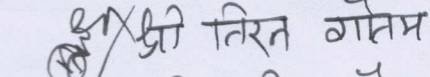 श्री तिरन गौतम